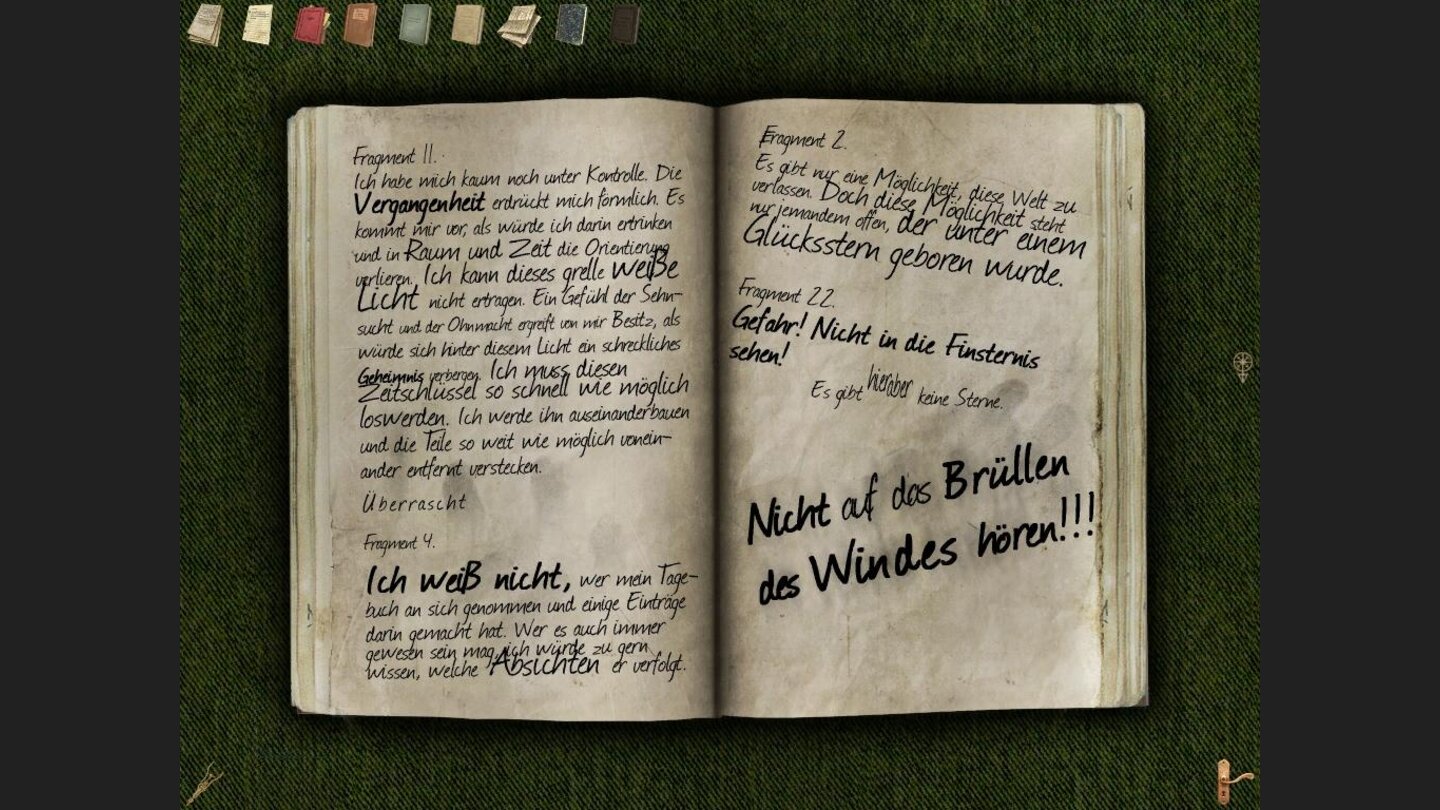 Fragment 11.
Ich habe mich kaum noch unter Kontrolle. Die
Vergangenheit erdrückt mich förmlich. Es
kommt mir vor, als würde ich darin ertrinken
und in Raum und Zeit die Orientierung
verlieren. Ich kann dieses grelle weiße
Licht nicht ertragen. Ein Gefühl der Sehn-
sucht und der Ohnmacht ergreift von mir Besitz, als
würde sich hinter diesem Licht ein schreckliches
Geheimnis verbergen. Ich muss diesen
Zeitschlüssel so schnell wie möglich
loswerden. Ich werde ihn auseinanderbauen
und die Teile so weit wie möglich vonein-
ander entfernt verstecken.
Überrascht
Fragment 4.
Ich weiß nicht, wer mein Tage-
buch an sich genommen und einige Einträge
darin gemacht hat. Wer es auch immer
gewesen sein mag, ich würde zu gern
wissen, welche Absichten er verfolgt.
Fragment 2.
Es gibt nur eine Möglichkeit, diese Welt zu
verlassen. Doch diese Möglichkeit steht
nur jemandem offen, der unter einem
Glücksstern geboren wurde.
Fragment 22.
Gefahr! Nicht in die Finsternis
sehen!
Es gibt hierüber keine Sterne.
Nicht auf das Brüllen
des Windes hören!!!